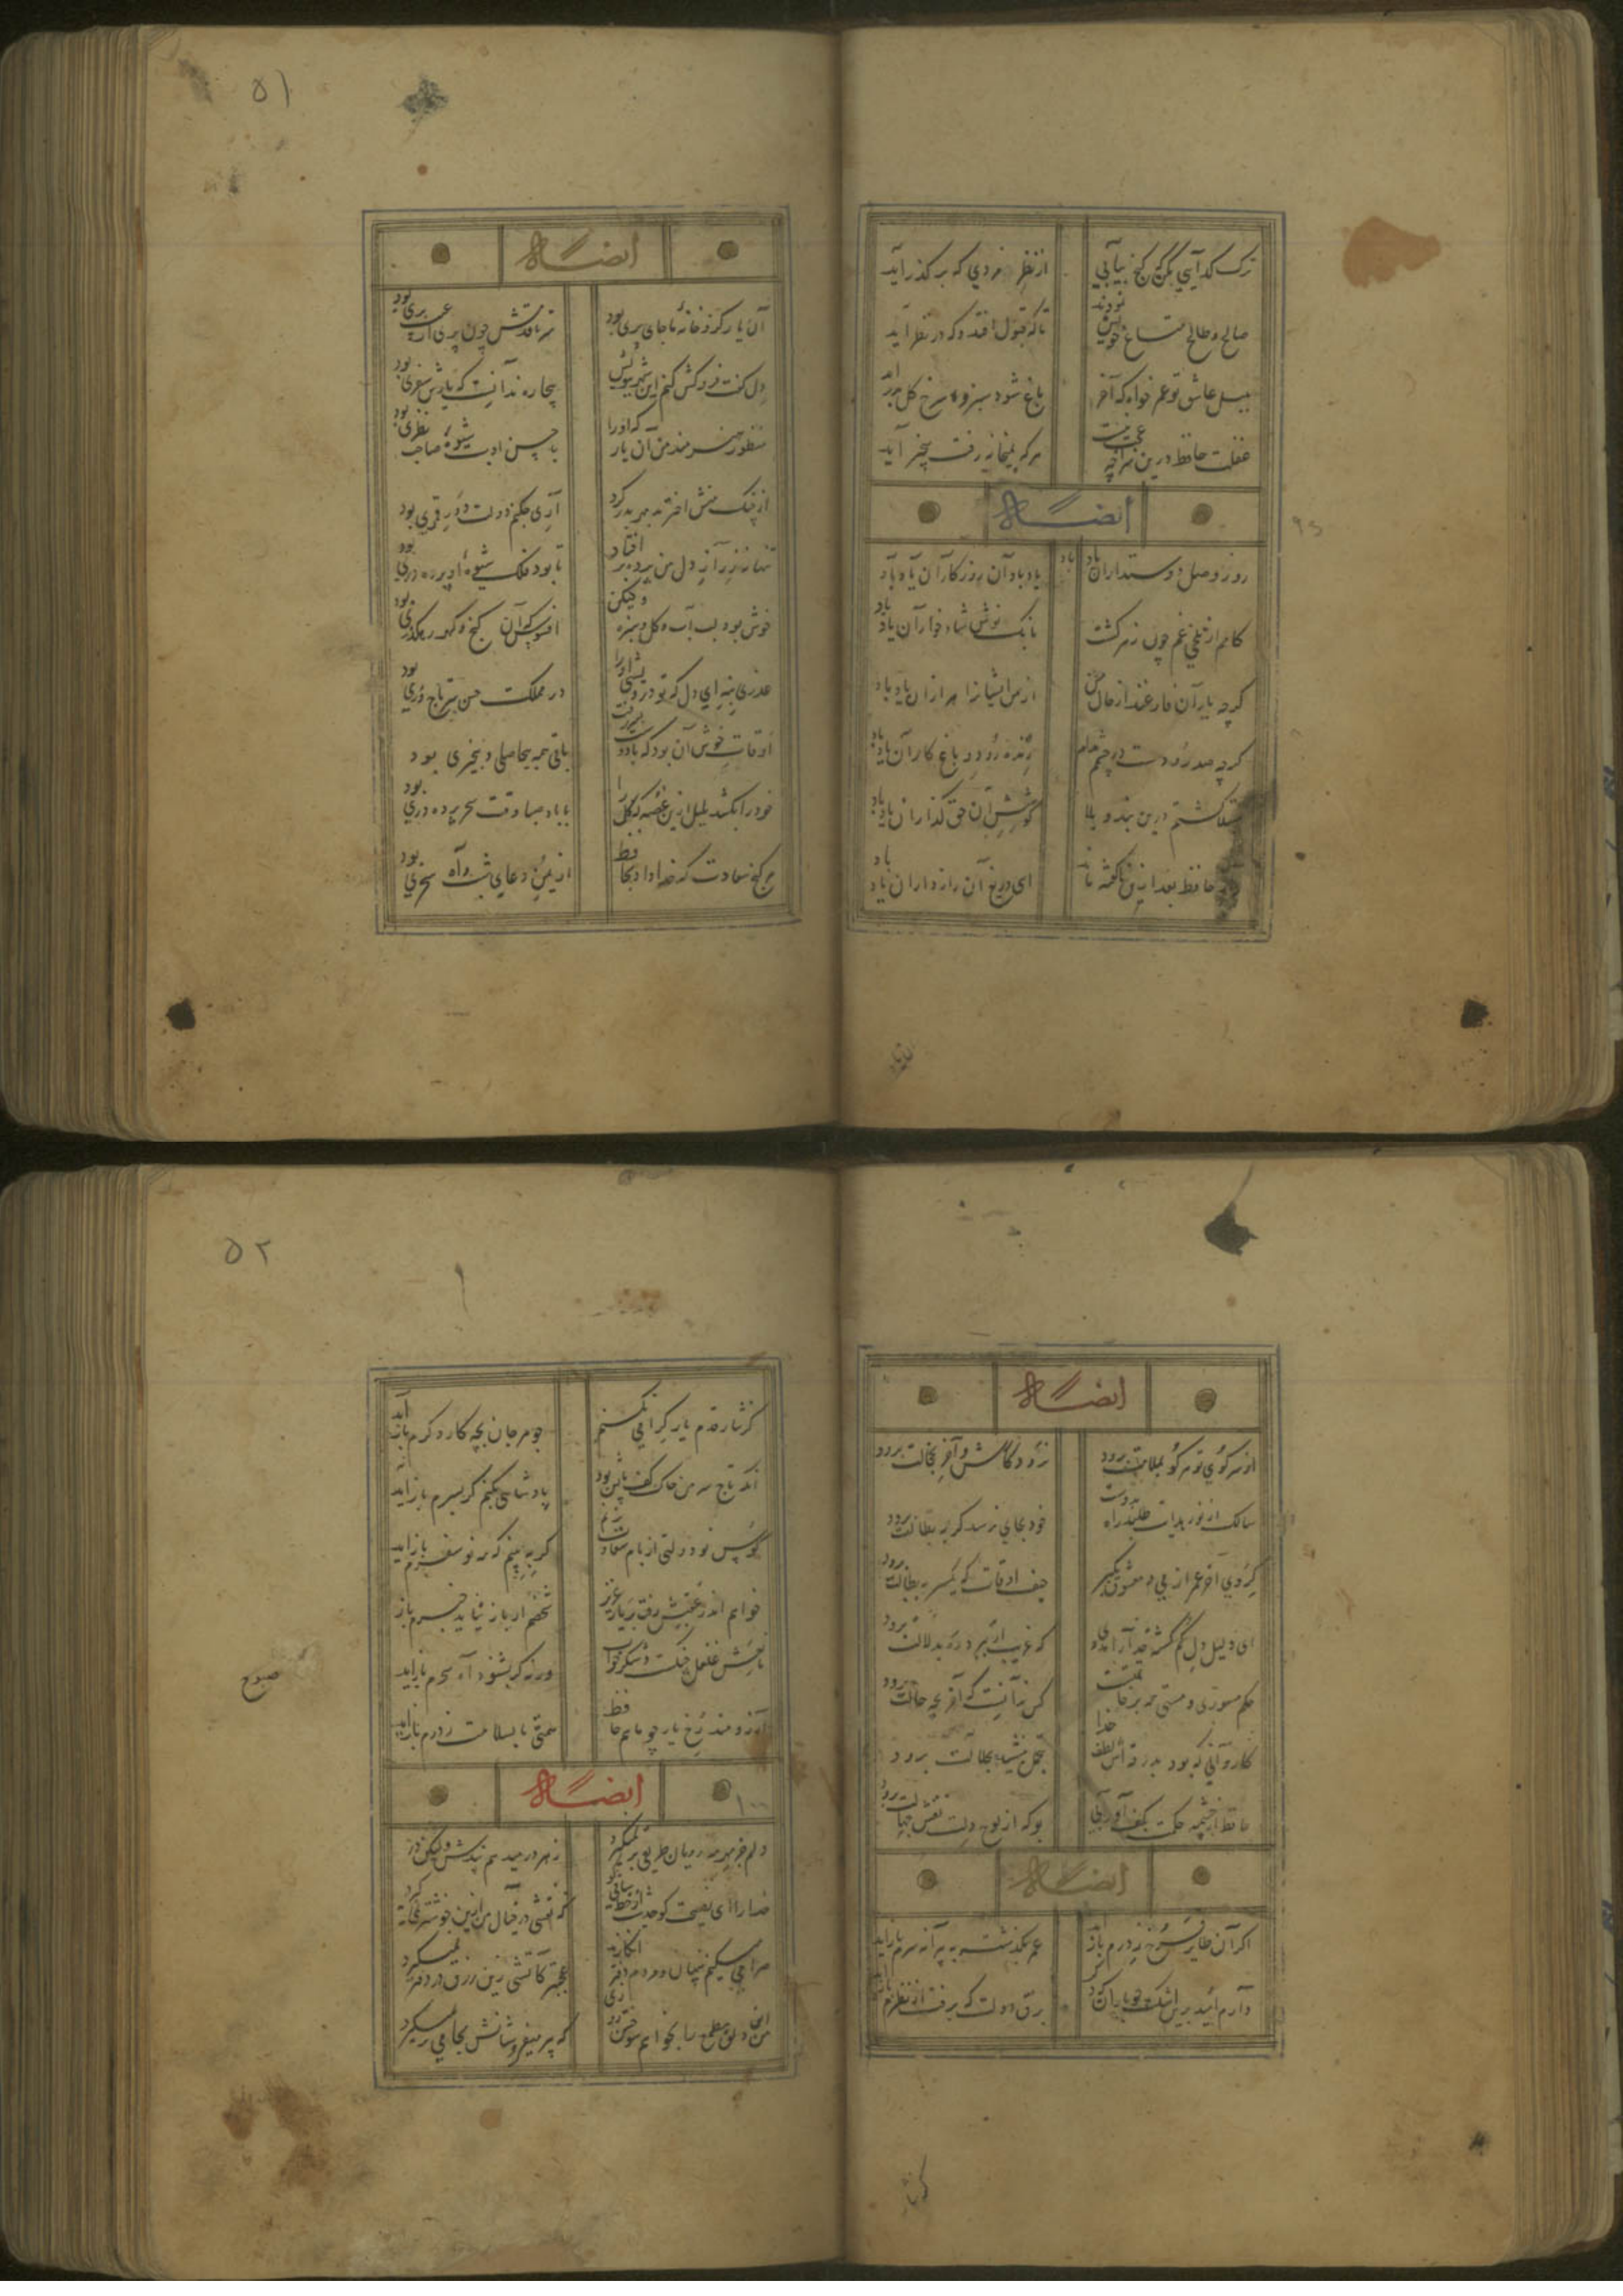 ترک گدایی مکن که گنج بیابی از نظر ره روی که بر گذر آید
صالح و طالح متاع خویش نمودند تا که قبول افتد و که در نظر آید
بلبل عاشق تو عمر خواه که آخر باغ شود سبز و سرخ گل ببر آید
غفلت حافظ درین سراچه عجب نیست هر که بمیخانه رفت بیخبر آید
ایضاً له
روز وصل دوستداران یاد باد یاد باد آن روزگاران یاد باد
کامم از تلخی غم چون زهر گشت بانک نوش شاد خواران یاد باد
گرچه یاران فارغند از حال من از من ایشانرا هزاران یاد باد
گرچه صد رودست در چشمم مدام زنده رود و باغ کاران یاد باد
مبتلا گشتم درین بند و بلا کوشش آن حق گذاران یاد باد
حافظ بعد ازین ناگفته ماند ای دریغ آن رازداران یاد باد
۵۱
ایضاً له
آن یار کزو خانهٔ ما جای پری بود سر تا قدمش چون پری از عیب بری بود
دل گفت فروکش کنم این شهر ببویش بیچاره ندانست که یارش سفری بود
منظور خردمند من آن یار که او را با حسن ادب شیوهٔ صاحب نظری بود
از چنگ منش اختر بد مهر بدر کرد آری چکنم دولت دور قمری بود
تنها نه ز راز دل من پرده برافتاد تا بود فلک شیوهٔ او پرده دری بود
خوش بود لب آب و گل و سبزه ولیکن افسوس که آن گنج گهر رهگذری بود
عذری بنه ای دل که تو درویشی او را در مملکت حسن سر تاجوری بود
اوقات خوش آن بود که با دوست بسر رفت باقی همه بیحاصلی و بیخبری بود
خود را بکشد بلبل ازین غصه که گل را با باد صبا وقت سحر پرده دری بود
هر گنج سعادت که خدا داد بحافظ از یمن دعای شب و آه سحری بود
ایضاً له
از سر کوی تو هر کو بملامت برود نرود کارش و آخر بخجالت برود
سالک از نور هدایت طلبد راه بدوست خود بجایی نرسد گر به بطالت برود
گروی آخر عمر از می و معشوق بگیر حیف اوقات که یکسر به بطالت برود
ای دلیل دل گم گشته خدا را مددی که غریب ار نبرد ره بدلالت برود
حکم مستوری و مستی همه بر خاتمت است کس ندانست که آخر بچه حالت برود
کاروانی که بود بدرقه اش لطف خدا بتجمل بنشیند بجلالت برود
حافظ از چشمهٔ حکمت بکف آور آبی بو که از لوح دلت نقش جهالت برود
ایضاً له
اگر آن طایر قدسی ز درم باز آید عمر بگذشته به پیرانه سرم باز آید
دارم امید برین اشک چو باران که دگر برق دولت که برفت از نظرم باز آید
۵۲
گر نثار قدم یار گرامی نکنم جوهر جان بچه کار دگرم باز آید
آنکه تاج سر من خاک کف پایش بود پادشاهی بکنم گر بسرم باز آید
کوس نو دولتی از بام سعادت بزنم گر ببینم که مه نو سفرم باز آید
خواهم اندر عقبش رفت بیاران عزیز شخصم ار باز نیاید خبرم باز
مانعش غلغل چنگست و شکر خواب صبوح ورنه گر بشنود آه سحرم باز آید
آرزومند رخ یار چو ماهم حافظ همتی تا بسلامت ز درم باز آید
ایضاً له
دلم جز مهر مه رویان طریقی بر نمیگیرد ز هر در میدهم پندش ولیکن در
خدا را ای نصیحت گو حدیث از خط ساقی گو که نقشی در خیال ما ازین خوشتر نمیگیرد
صراحی میکشم پنهان و مردم دفتر انگارند عجب گر آتشی زین زرق در دفتر نمیگیرد
من این دلق ملمع را بخواهم سوختن روزی که پیر میفروشانش بجامی بر نمیگیرد